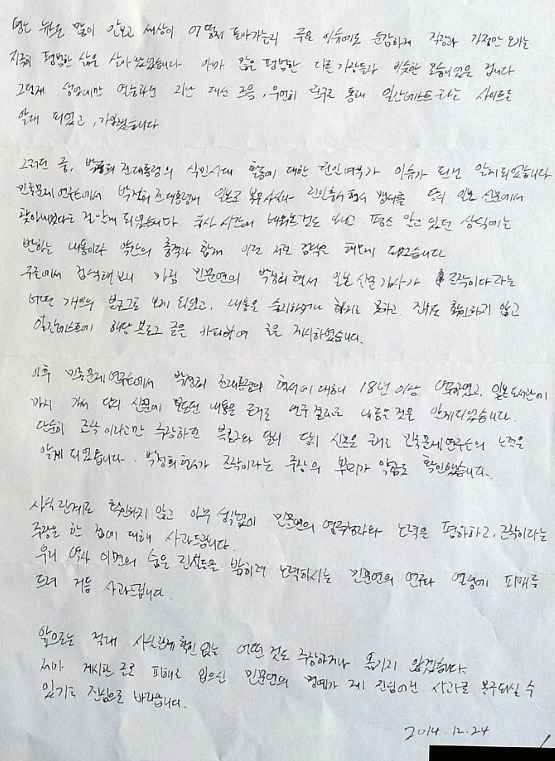 저는 뉴스도 많이 안보고 세상이 어떻게 돌아가는지 주요 이슈에도 둔감하게 직장과 가정만 오가는
지극히 평범한 삶을 살아 왔습니다. 아마 많은 평범한 다른 가장들과 비슷한 모습이었을 겁니다
그런데 지난 대선 즈음, 우연히 친구를 통해 일간베스트라는 사이트를
알게 되었고, 가입했습니다
그러던 중, 박정희 전대통령의 식민시대 활동에 대한 친일여부가 이슈가 된걸 알게되었습니다
민족문제연구소에서 박정희 전대통령이 일본군 혈서 당시 일본 신문에서
찾아냈다는 걸 알게 되었습니다. 역사 시간에 배워본 것도 평소 알고 있던 상식에는
반하는 내용이라 약간의 충격과 함께 이런 저런 검색을 해보게 되었습니다
구글에서 검색해보니 민문연의 박정희 혈서 일본 신문기사가 조작이다라는
어떤 개인의 블로그를 보게 되었고, 내용을 숙지하거나 진위도 확인하지 않고
일간베스트에 해당 블로그 글을 카피하여 글을 게시하였습니다.
이후 민족문제연구소에서 박정희 전대통령의 혈서에 대해서 18년 이상 연구하였고, 일본도서관에
까지 가서 당시 신문에 보도된 내용을 근거로 연구 결과로 내놓은 것을 알게되었습니다.
단순히 조작이라고만 주장하던 블로그와 달리 당시 신문을 근거로 민족문제연구소의 노력을
알게 되었습니다. 박정희 혈서가 조작이라는 주장의 뿌리가 확인했습니다.
사실 관계를 확인하지 않고 아무 생각없이 민문연의 연구결과와 노력을 폄하하고, 조작이라는
주장을 한 점에 대해 사과드립니다.
우리 역사 이면의 숨은 진실들을 밝히려 노력하시는 민문연의 연구와 열정에 피해를
드려 거듭 사과드립니다.
앞으로는 절대 사실관계 확인 없는 어떤 것도 주장하거나 옮기지 않겠습니다.
제가 게시한 글로 피해를 입으신 민문연의 명예가 제 진심어린 사과로 복구되실 수
있기를 진심으로 바랍니다.
2014.12.24